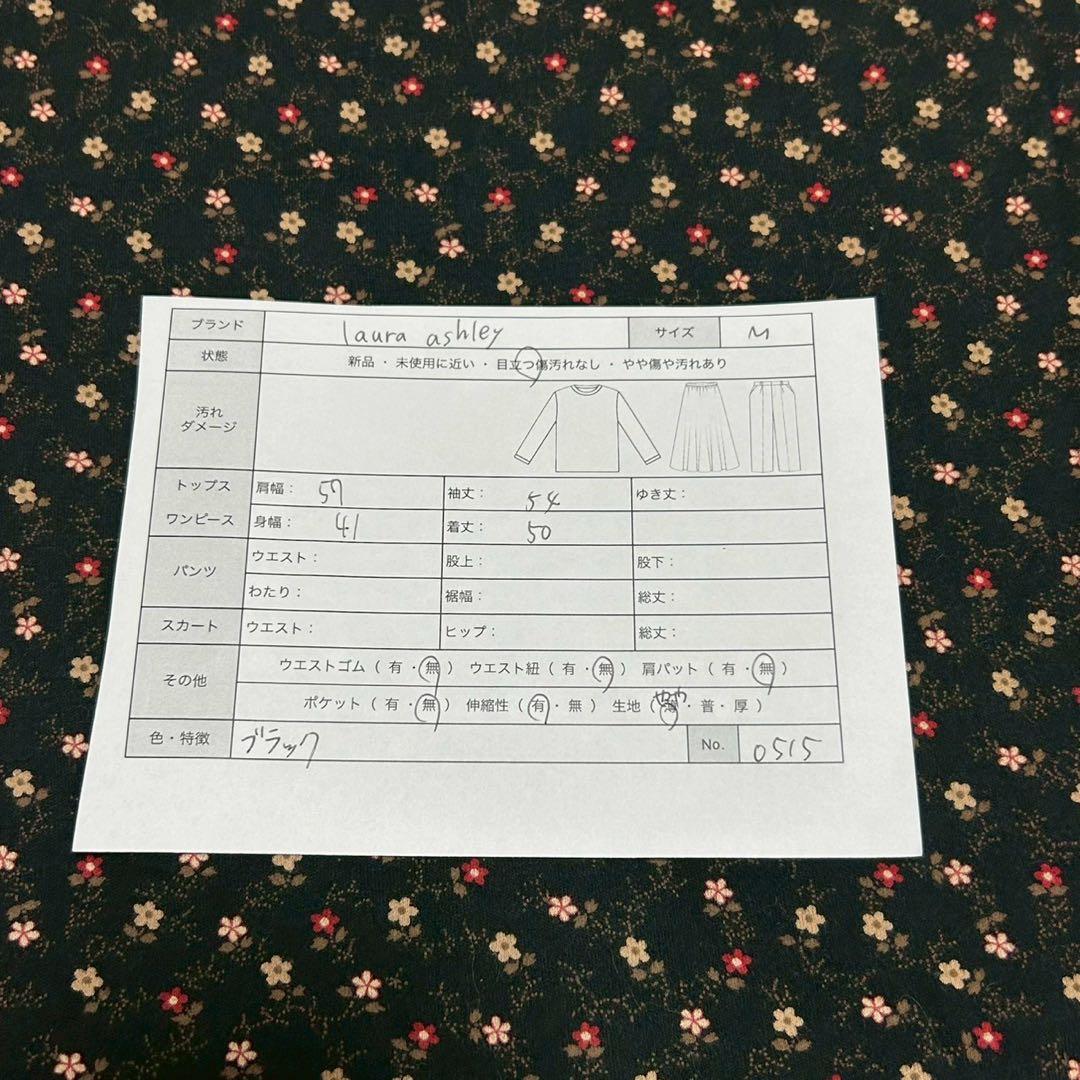 ブランド laura ashley サイズ M
状態 新品 ・ 未使用に近い ・ 目立つ傷汚れなし ・ やや傷や汚れあり
汚れ
ダメージ
トップス 肩幅： 57 袖丈： 54 ゆき丈：
ワンピース 身幅： 41 着丈： 50
パンツ ウエスト： 股上： 股下：
わたり： 裾幅： 総丈：
スカート ウエスト： ヒップ： 総丈：
その他 ウエストゴム （ 有 ・ 無 ） ウエスト紐 （ 有 ・ 無 ） 肩パット （ 有 ・ 無 ）
ポケット （ 有 ・ 無 ） 伸縮性 （ 有 ・ 無 ） 生地 （ やや 薄 ・ 普 ・ 厚 ）
色・特徴 ブラック No. 0515